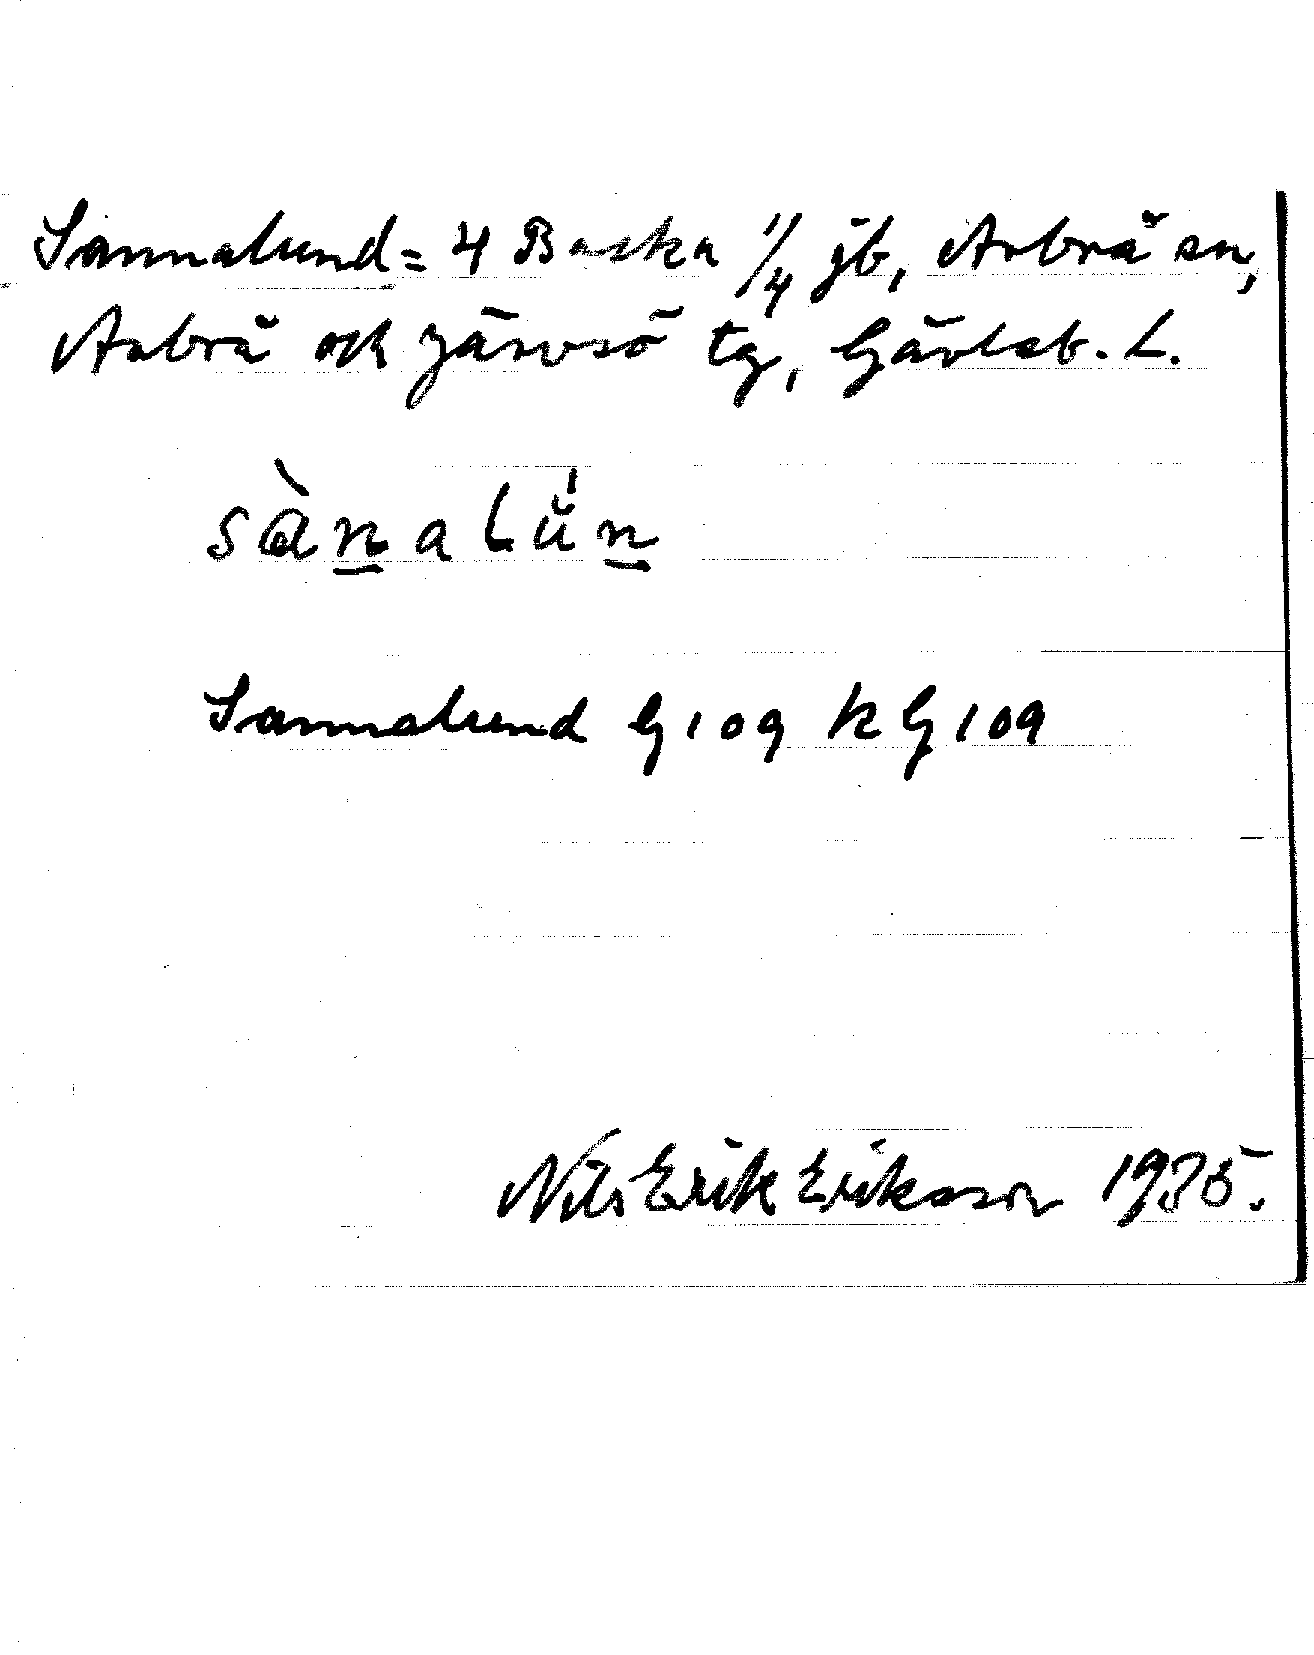 Sannalund = 4 Backa 1/4 jb, Arbrå sn,
Arbrå och Järvsö tg, Gävleb. L.
sànalún
Sannalund G109 K G109
Nils Erik Eriksson 1935.